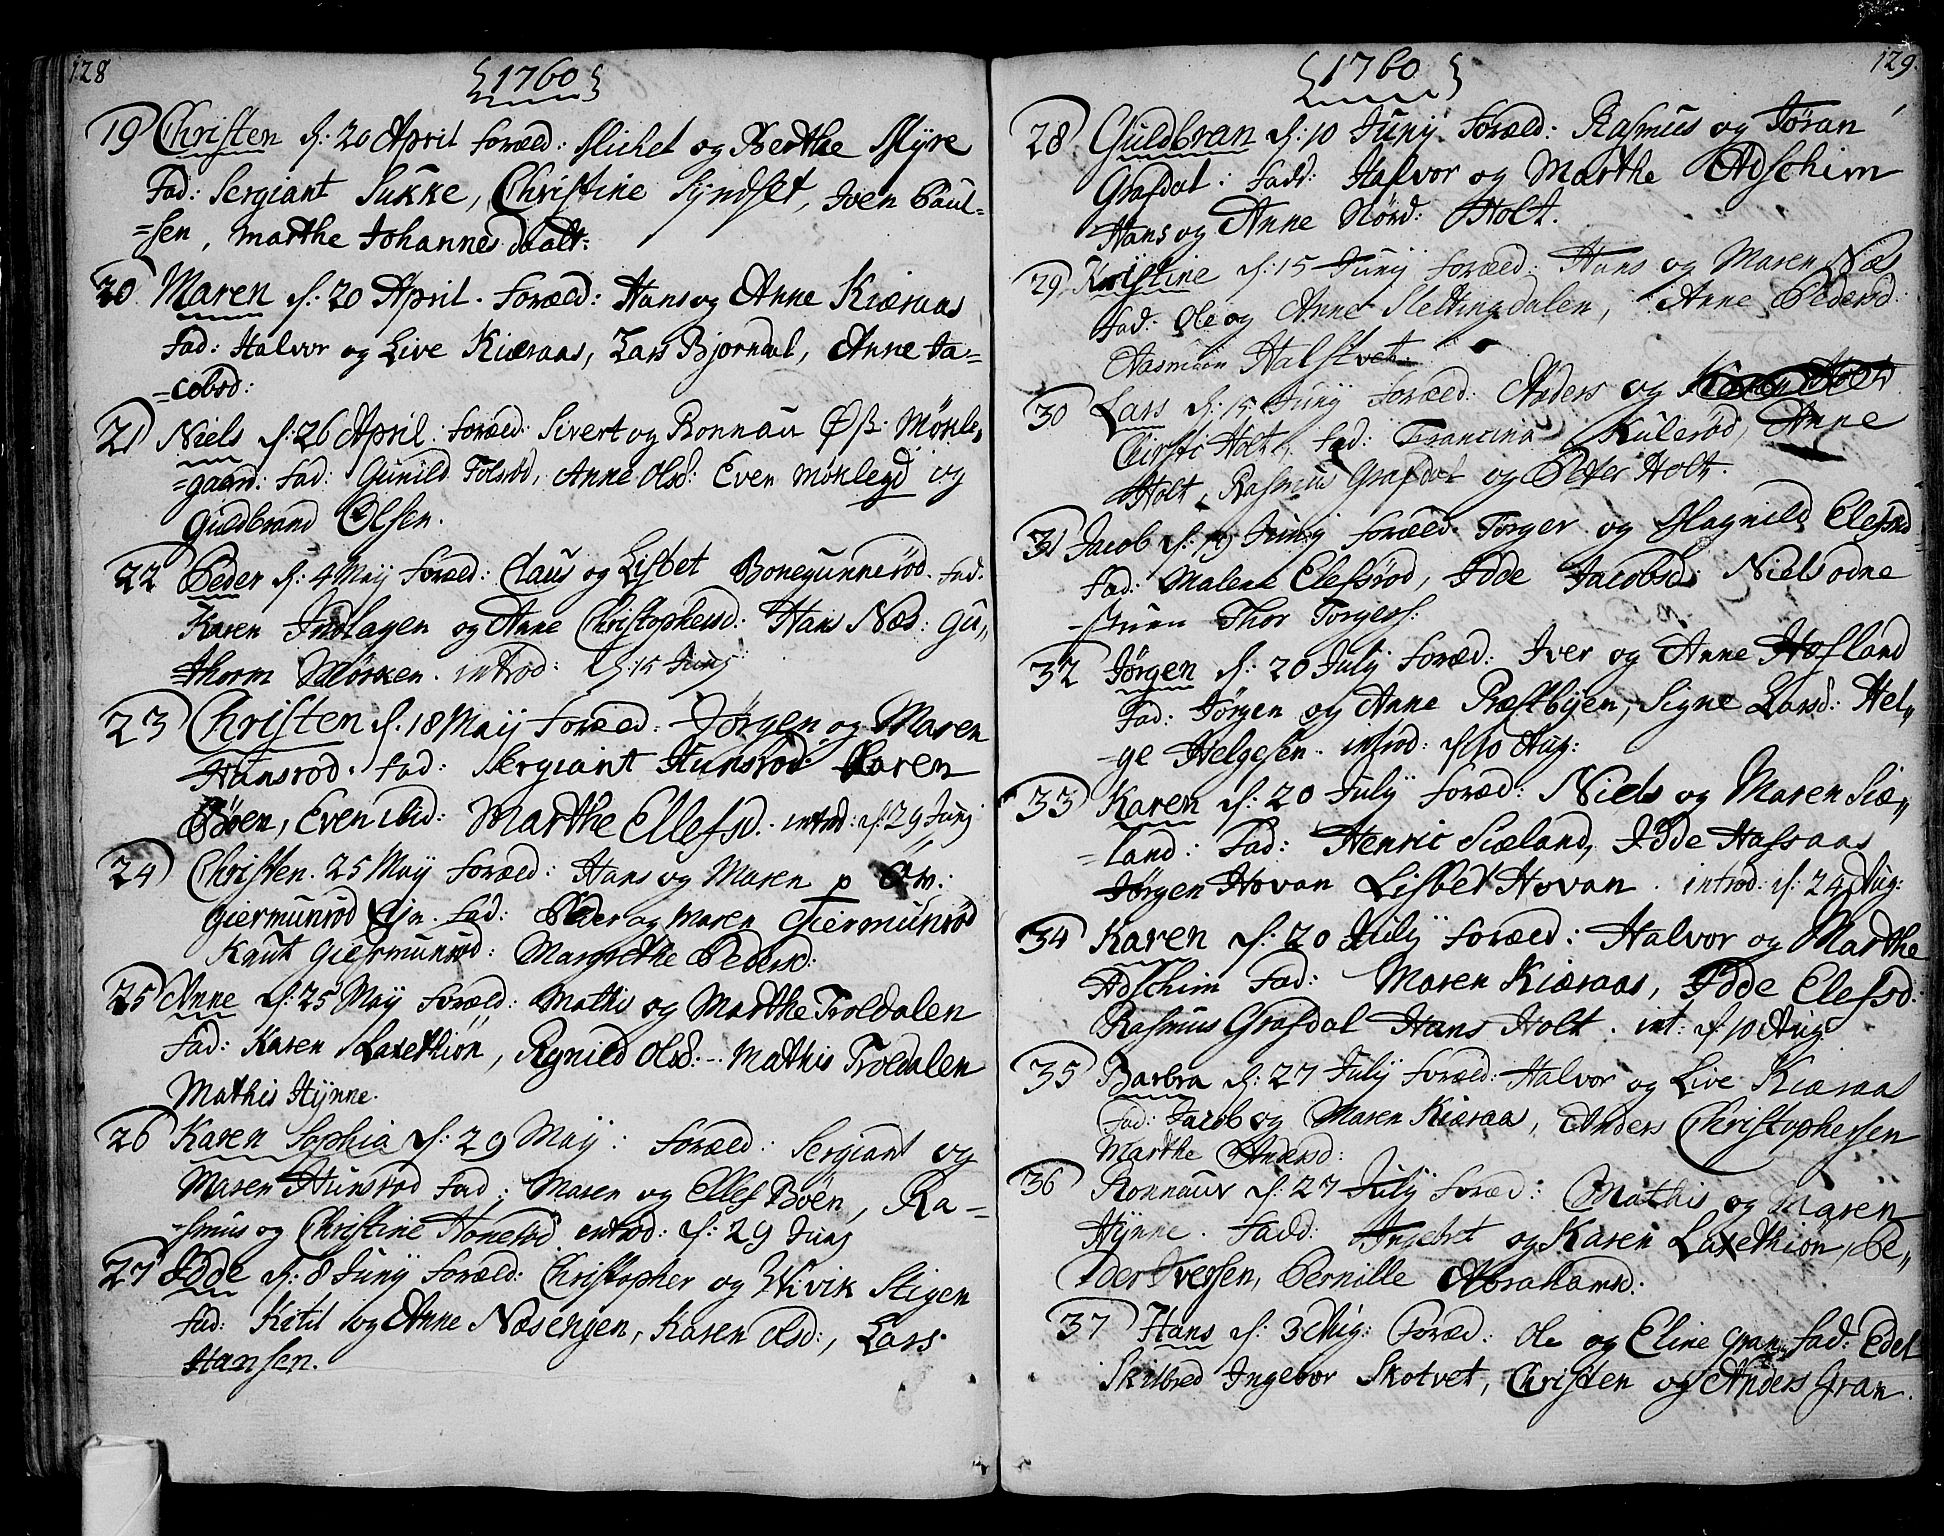 128
1760
19 Christen d: 20 April Foræld: Michel og Berthe Myre
Fad: Sergiant Sukke, Christine Syndset, Iven Paul-
=sen, Marthe Johannesdaatt:
20 Maren d: 20 April. Foræld: Hans og Anne Kiæraas
Fad: Halvor og Live Kiæraas, Lars Bjørndal, Anne Ja-
=cobsd:
21 Niels d: 26 April: Foræld: Sivert og Ronnau Øß: Mørkle,,
=gaard: Fad: Gunild Folsrød, Anne Olsd: Even Mørklegd og
Guldbrand Olsen.
22 Peder d: 4 Maÿ Foræld: Claus og Lisbet Bonegunnerød. Fad:
Karen Indlagen og Anne Christophersd: Hans Næs: Gu,,
=thorm Mørken. introd: d: 15 Junÿ
23 Christen d. 18 Maÿ Foræld: Jørgen og Maren
Hansrød. Fad: Sergiant Hunsrød: Karen
Böen, Even ibid: Marthe Ellefsd. introd: d: 29 Junÿ
24 Christen. 25 Maÿ Foræld: Hans og Maren p
Giermunrød Eje. Fad: Peder og Maren Giermunrød
Knut Giermunrød: Margrethe Pedersd:
25 Anne d: 25 Maÿ Foræld: Mathis og Marthe Troldalen
Fad: Karen Laxethiön, Rgnild Olsd: - Mathis Troldalen
Mathis Hÿnne.
26 Karen Sophia d: 29 Maÿ: Foræld: Sergiant og
Maren Hunsrød Fad: Maren og Ellef Böen, Ra-
=smus og Christine Honerød introd: d: 29 Junÿ
27 Idde d: 8 Junÿ Foræld: Christopher og Wivik Stigen
Fad: Ketil og Anne Næsengen, Karen Olsd:, Lars
Hansen.
129.
1760
28 Guldbran d: 10 Junÿ Foræld: Rasmus og Jøran
Grafdal: Fadd: Halvor og Marthe Adschim
Hans og Anne Nørd: Holt.
29 Kristine d: 15 Junÿ Foræld: Hans og Maren Næs
Fad: Ole og Anne Slettingdalen, Anne Pedersd:
Aasmun Halstvet.
30 Lars d: 15 Junÿ Foræld: Anders og Karen Holt
Chirsti Holt, Fad: Francina Kulerød, Anne
Holt, Rasmus Grafdal og Peter Holt.
31 Jacob d: Junÿ Foræld: Torger og Magnild Elefsrød
Fad: Malene Elefsrød, Idde Jacobsd: Niels Odne
Thor Torgers:
32 Jørgen d: 20 Julÿ Foræld: Iver og Anne Hafland
Fad: Jørgen og Anne Præstbÿen, Signe Larsd: Hel,,
-ge Helgesen. introd: d: 10 Aug:
33 Karen d: 20 Julÿ Foræd: Niels og Maren Siæ,,
=land: Fad: Henric Siæland, Idde Hafsaas
Jørgen Hovan Lisbet Hovan. introd: d: 24 Aug:
34 Karen d: 20 Julÿ Foræld: Halvor og Marthe
Adschim Fad: Maren Kiæraas, Idde Elefsd:
Rasmus Grafdal Hans Holt. int: d: 10 Aug
35 Barbra d: 27 Julÿ Foræld: Halvor og Live Kiæraas
Fad: Jacob og Maren Kiæraa, Anders Christophersen
Marthe Andersd:
36 Ronnauv d: 27 Julÿ Foræd: Mathis og Maren
Hÿnne. Fadd: Ingebret og Karen Laxethion, Pe,,
der Iversen, Pernille Abrahamsd:
37 Hans d: 3 Aug: Foræd: Ole og Eline Gran, Fad: Edel
Skilbred Ingebor Skotvet, Christen og Anders Gran.